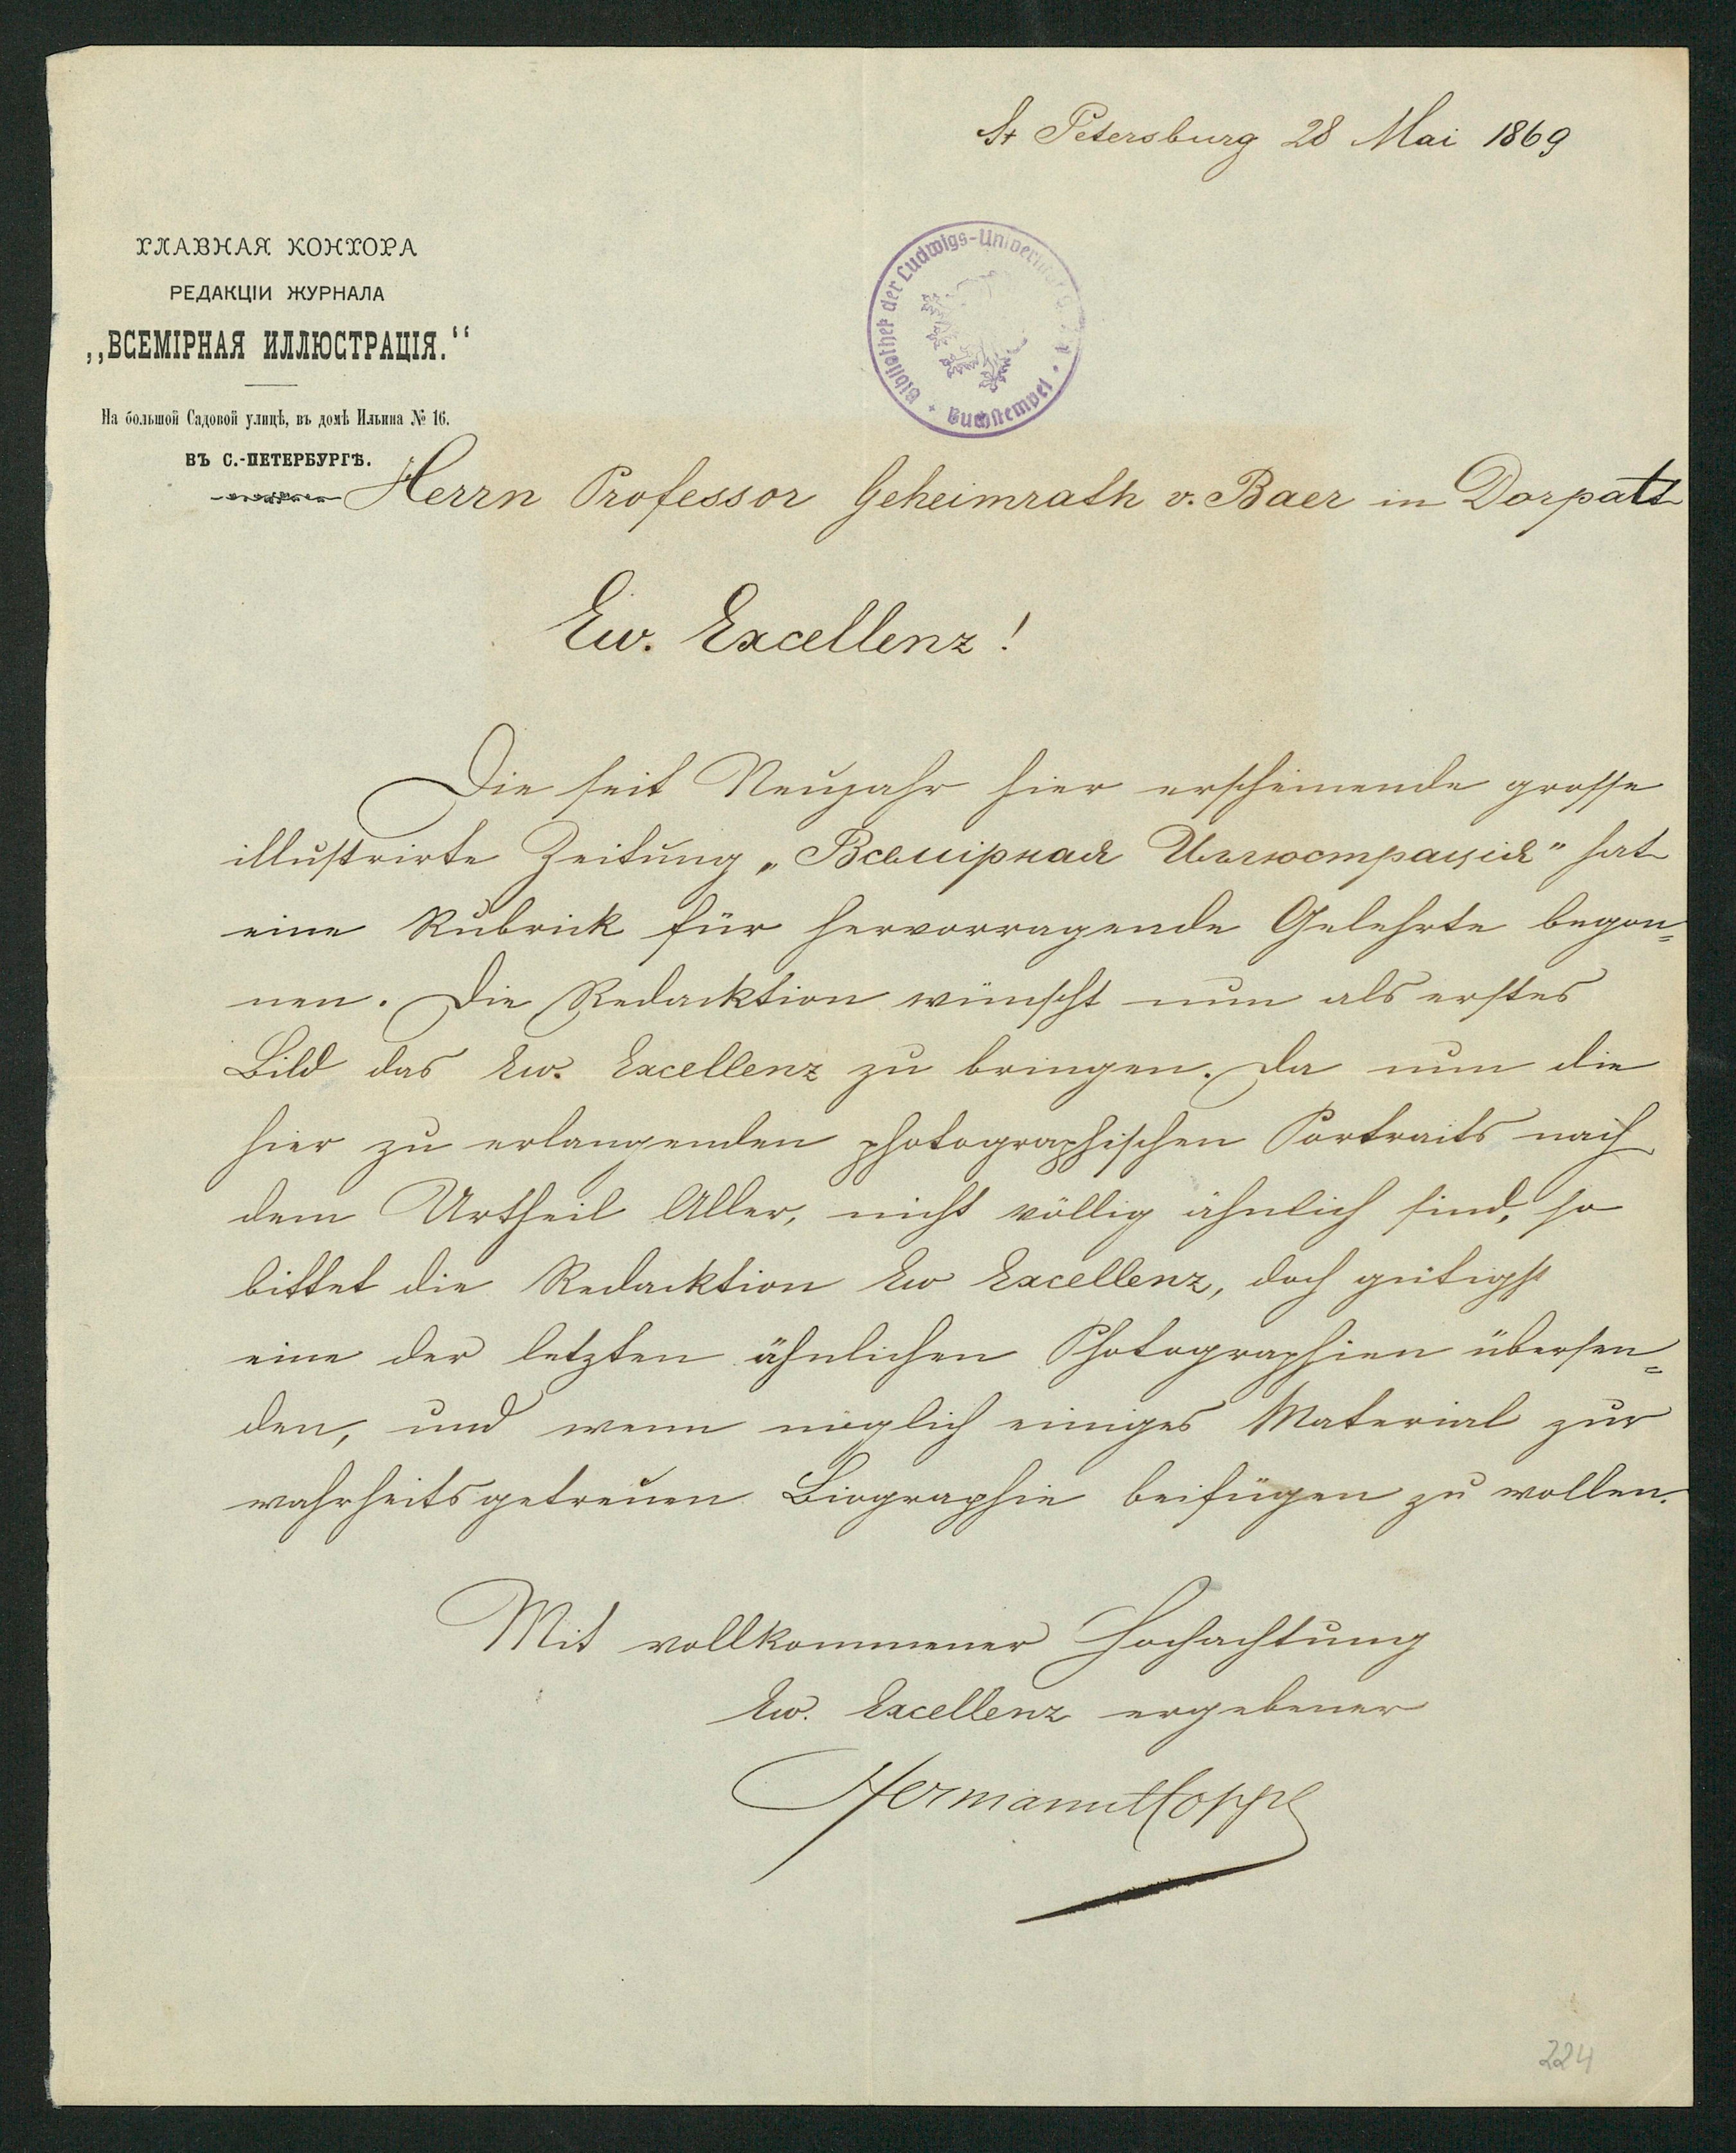 St Petersburg 28 Mai 1869
ГЛАВНАЯ КОНТОРА
РЕДАКЦІИ ЖУРНАЛА
„ВСЕМІРНАЯ ИЛЛЮСТРАЦІЯ.“
На большой Садовой улицѣ, въ домѣ Ильина № 16.
ВЪ С.-ПЕТЕРБУРГѢ.
Bibliothek der Ludwigs-Universität
Buchstempel
Herrn Professor Geheimrath v. Baer in Dorpat
Ew. Excellenz!
Die seit Neujahr hier erscheinende grosse
illustrirte Zeitung „Всемірная Иллюстрація“ hat
eine Rubrick für hervorragende Gelehrte begon=
nen. Die Redacktion wünscht nun als erstes
Bild das Ew. Excellenz zu bringen. Da nun die
hier zu erlangenden photographischen Portraits nach
dem Urtheil Aller, nicht völlig ähnlich sind, so
bittet die Redacktion Ew Excellenz, doch gütigst
eine der letzten ähnlichen Photographien übersen=
den, und wenn möglich einiges Material zur
wahrheitsgetreuen Biographie beifügen zu wollen.
Mit vollkommener Hochachtung
Ew. Excellenz ergebener
Hermann Hoppe
224